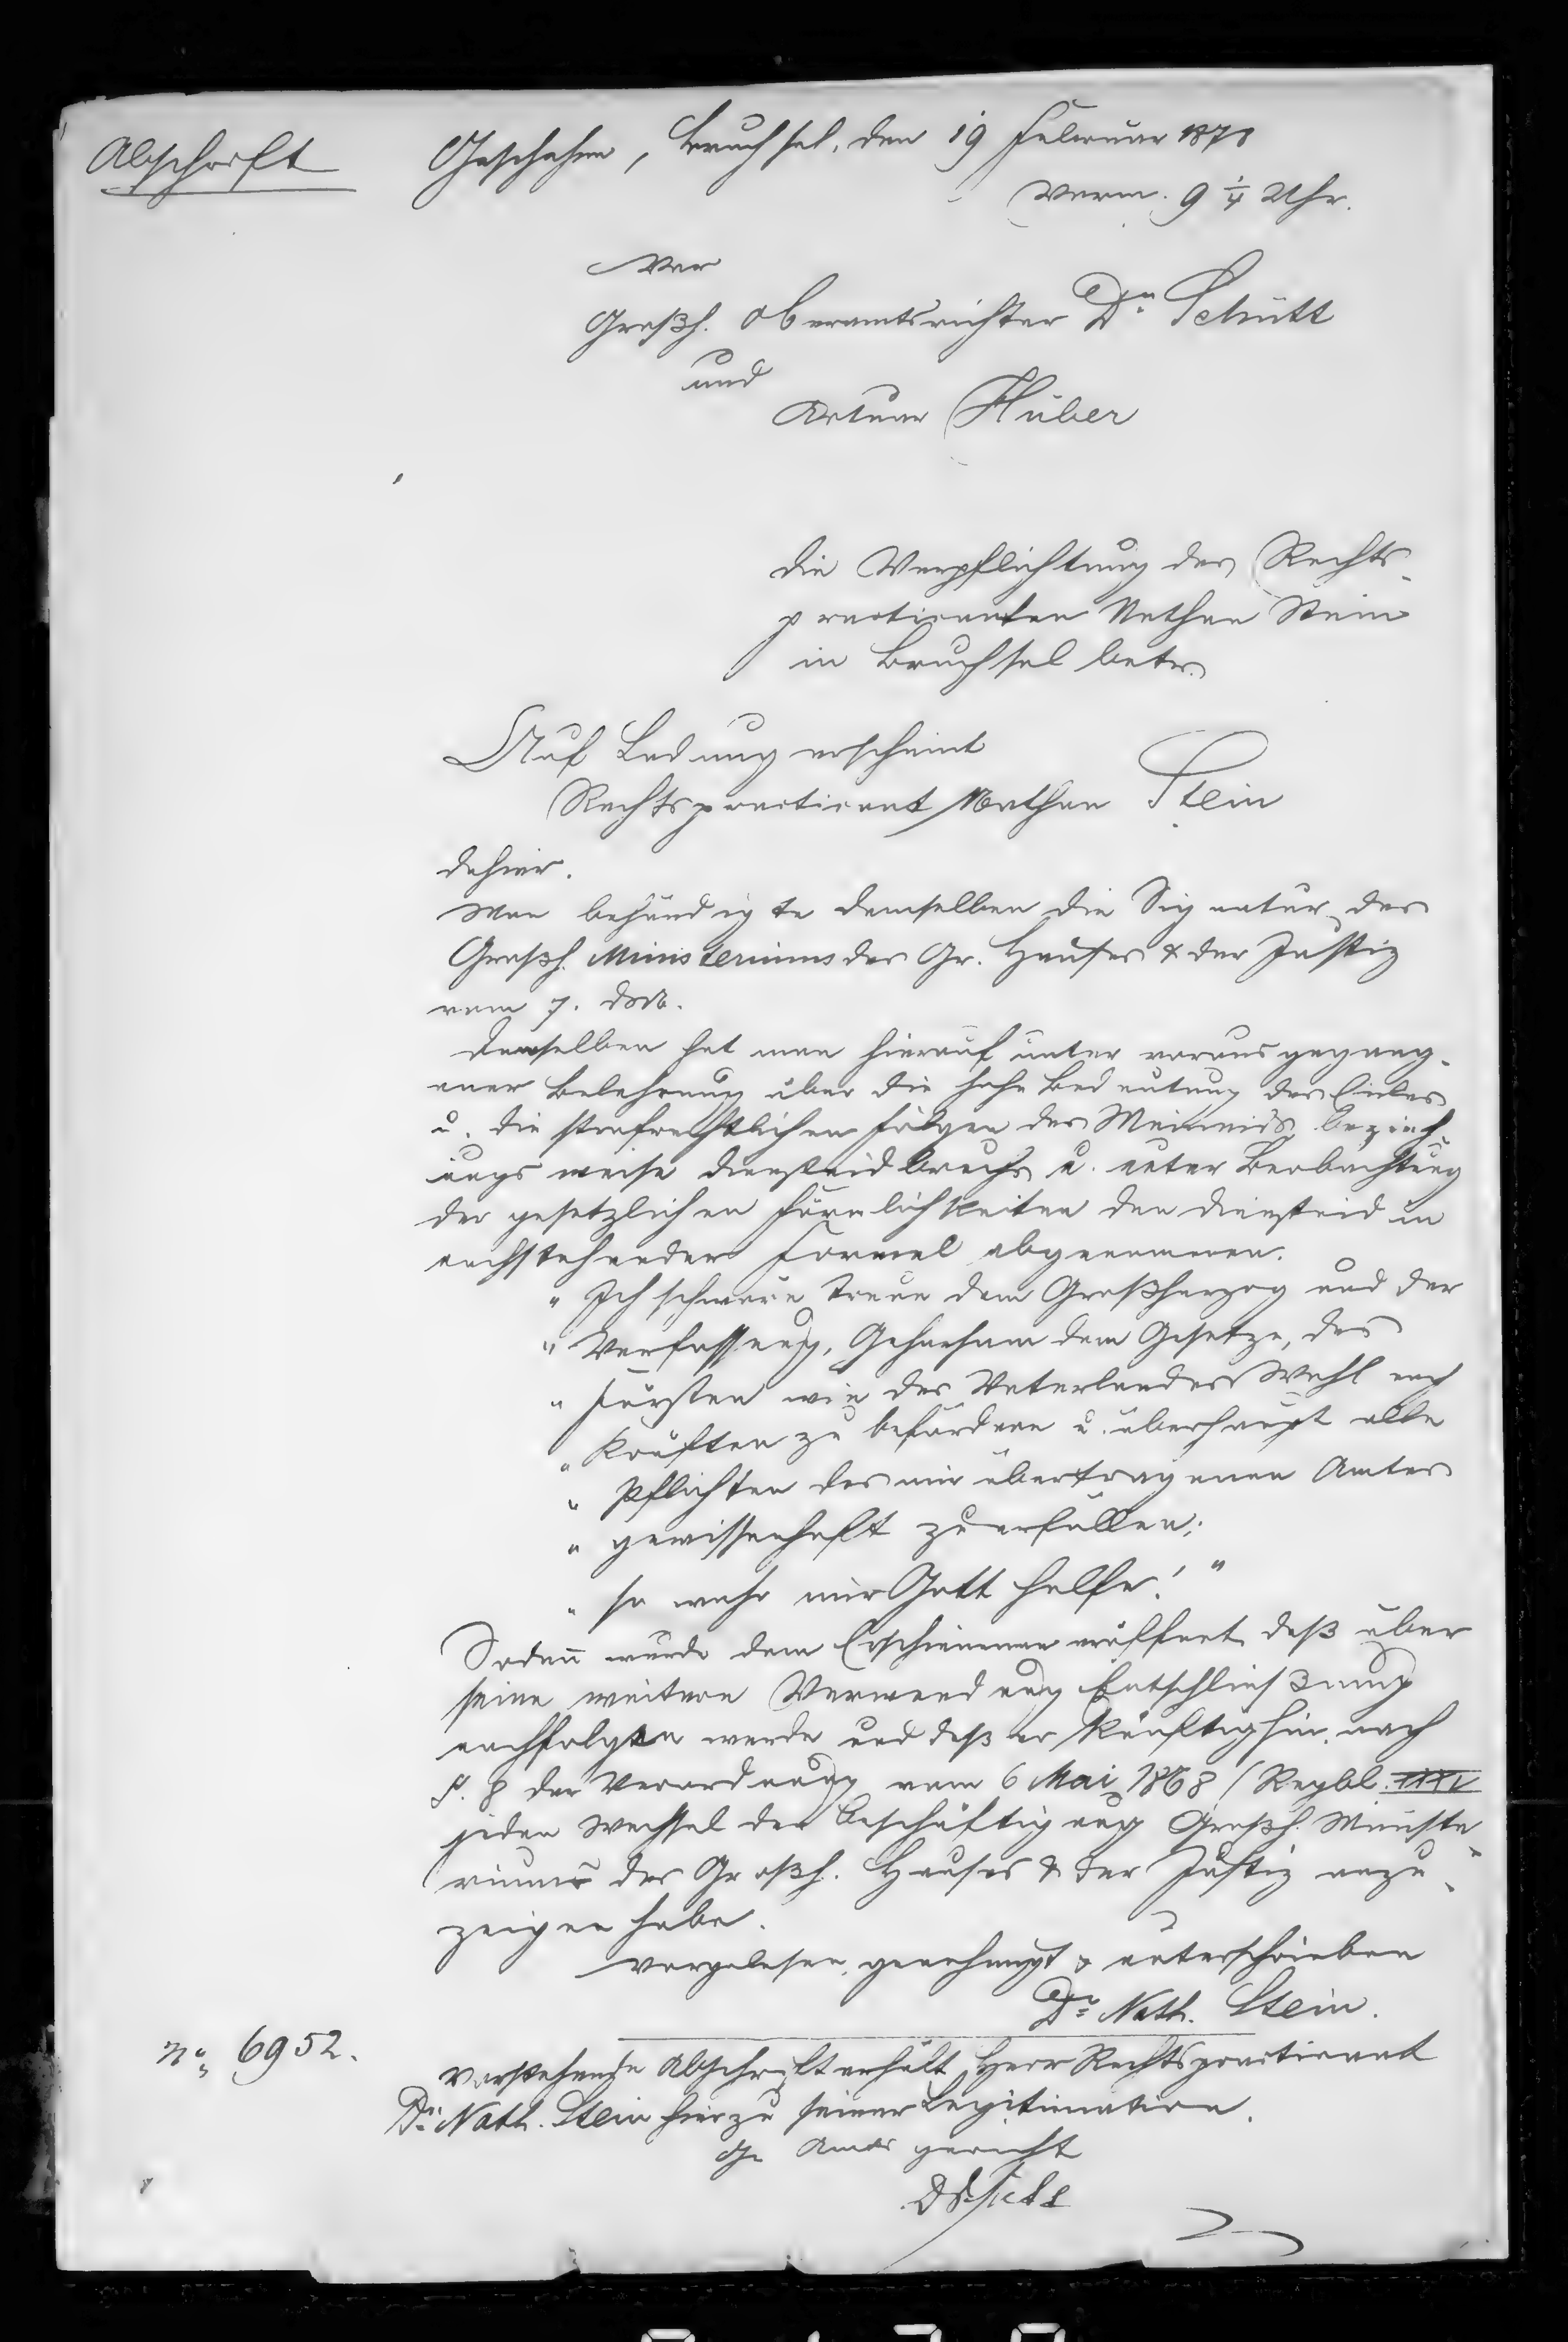 Abschrift
Geschehen, Bruchsal, den 19 Februar 187
Vorm. 9 1/4 Uhr.
Vor
Großh. Oberamtsrichter Dr. Schütt
und
Actuar Huber
die Verpflichtung des Rechts-
practicanten Nathan Stein
in Bruchsal betr.
Auf Ladung erscheint
Rechtspracticant Nathan Stein
dahier.
Man behändigte demselben die Signatur des
Großh. Ministeriums des Gr. Hauses & der Justiz
vom 7. dss.
Demselben hat man hierauf unter vorausgegang-
ener Belehrung über die hohe Bedeutung des Eides
u. die strafrechtlichen Folgen des Meineids bezieh-
ungsweise Diensteidbruchs u. unter Beobachtung
der gesetzlichen Förmlichkeiten den Diensteid in
nachstehender Formel abgenommen.
„ Ich schwöre Treue dem Großherzog und der
„ Verfassung, Gehorsam dem Gesetze, des
„ Fürsten wie des Vaterlandes Wohl nach
„ Kräften zu befördern u. überhaupt alle
„ Pflichten des mir übertragenen Amtes
„ gewissenhaft zu erfüllen;
„ so wahr mir Gott helfe! "
Sodann wurde dem Erschienenen eröffnet, daß über
seine weitere Verwendung Entschließung
nachfolgen werde und daß er künftighin nach
§. 8 der Verordnung vom 6 Mai 1868 (Regbl.
jeden Wechsel der Beschäftigung Großh. Ministe-
riums des Großh. Hauses & der Justiz anzu-
zeigen habe.
vorgelesen, genehmigt & unterschrieben
Dr. Nath. Stein.
No. 6952.
Vorstehende Abschrift erhält Herr Rechtspracticant
Dr. Nath. Stein hier zu seiner Legitimation.
Gr. Amtsgericht